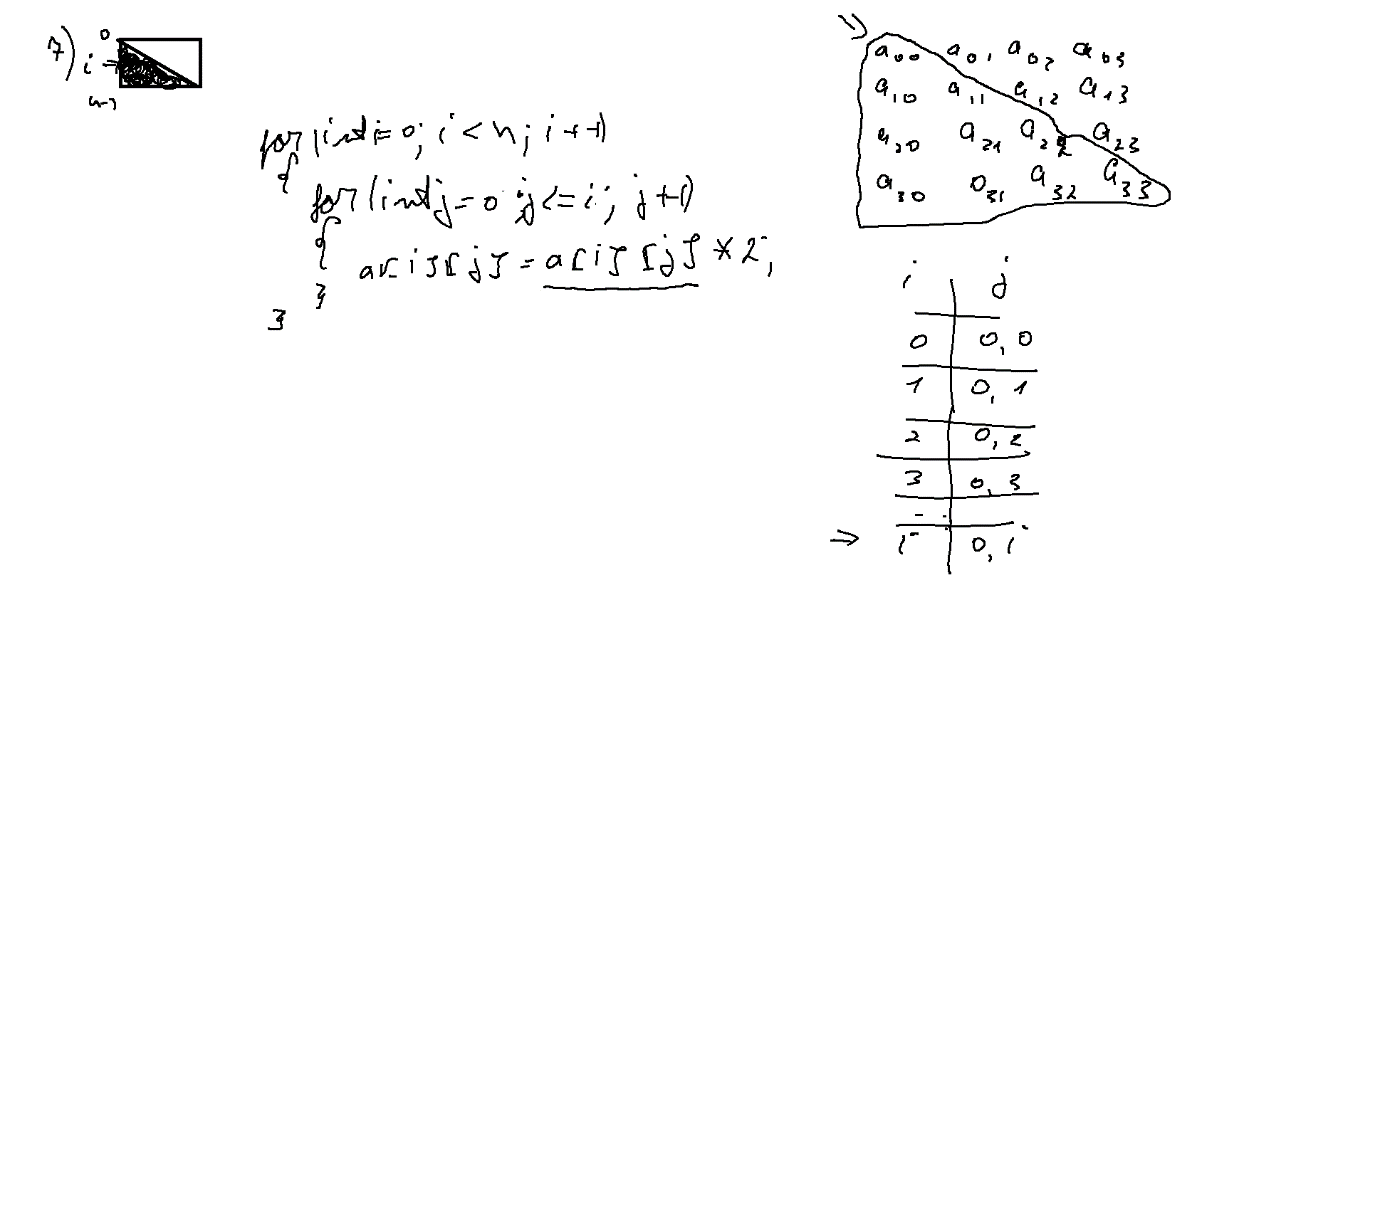 7)
0
i →
n-1
for (int i=0; i<n; i++)
{
for (int j=0; j<=i; j++)
{
a[i][j] = a[i][j] * 2;
}
}
=>
a00 a01 a02 a03
a10 a11 a12 a13
a20 a21 a22 a23
a30 a31 a32 a33
i j
0 0, 0
1 0, 1
2 0, 2
3 0, 3
=> i 0, i